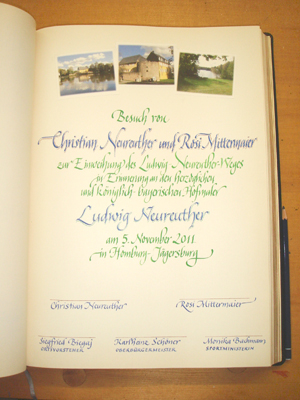 Besuch von
Christian Neureuther und Rosi Mittermaier
zur Einweihung des Ludwig-Neureuther-Weges
in Erinnerung an den herzoglichen
und königlich-bayerischen Hofmaler
Ludwig Neureuther
am 5. November 2011
in Homburg-Jägersburg
Christian Neureuther
Rosi Mittermaier
Siegfried Biegaj
ORTSVORSTEHER
Karlheinz Schöner
OBERBÜRGERMEISTER
Monika Bachmann
SPORTMINISTERIN